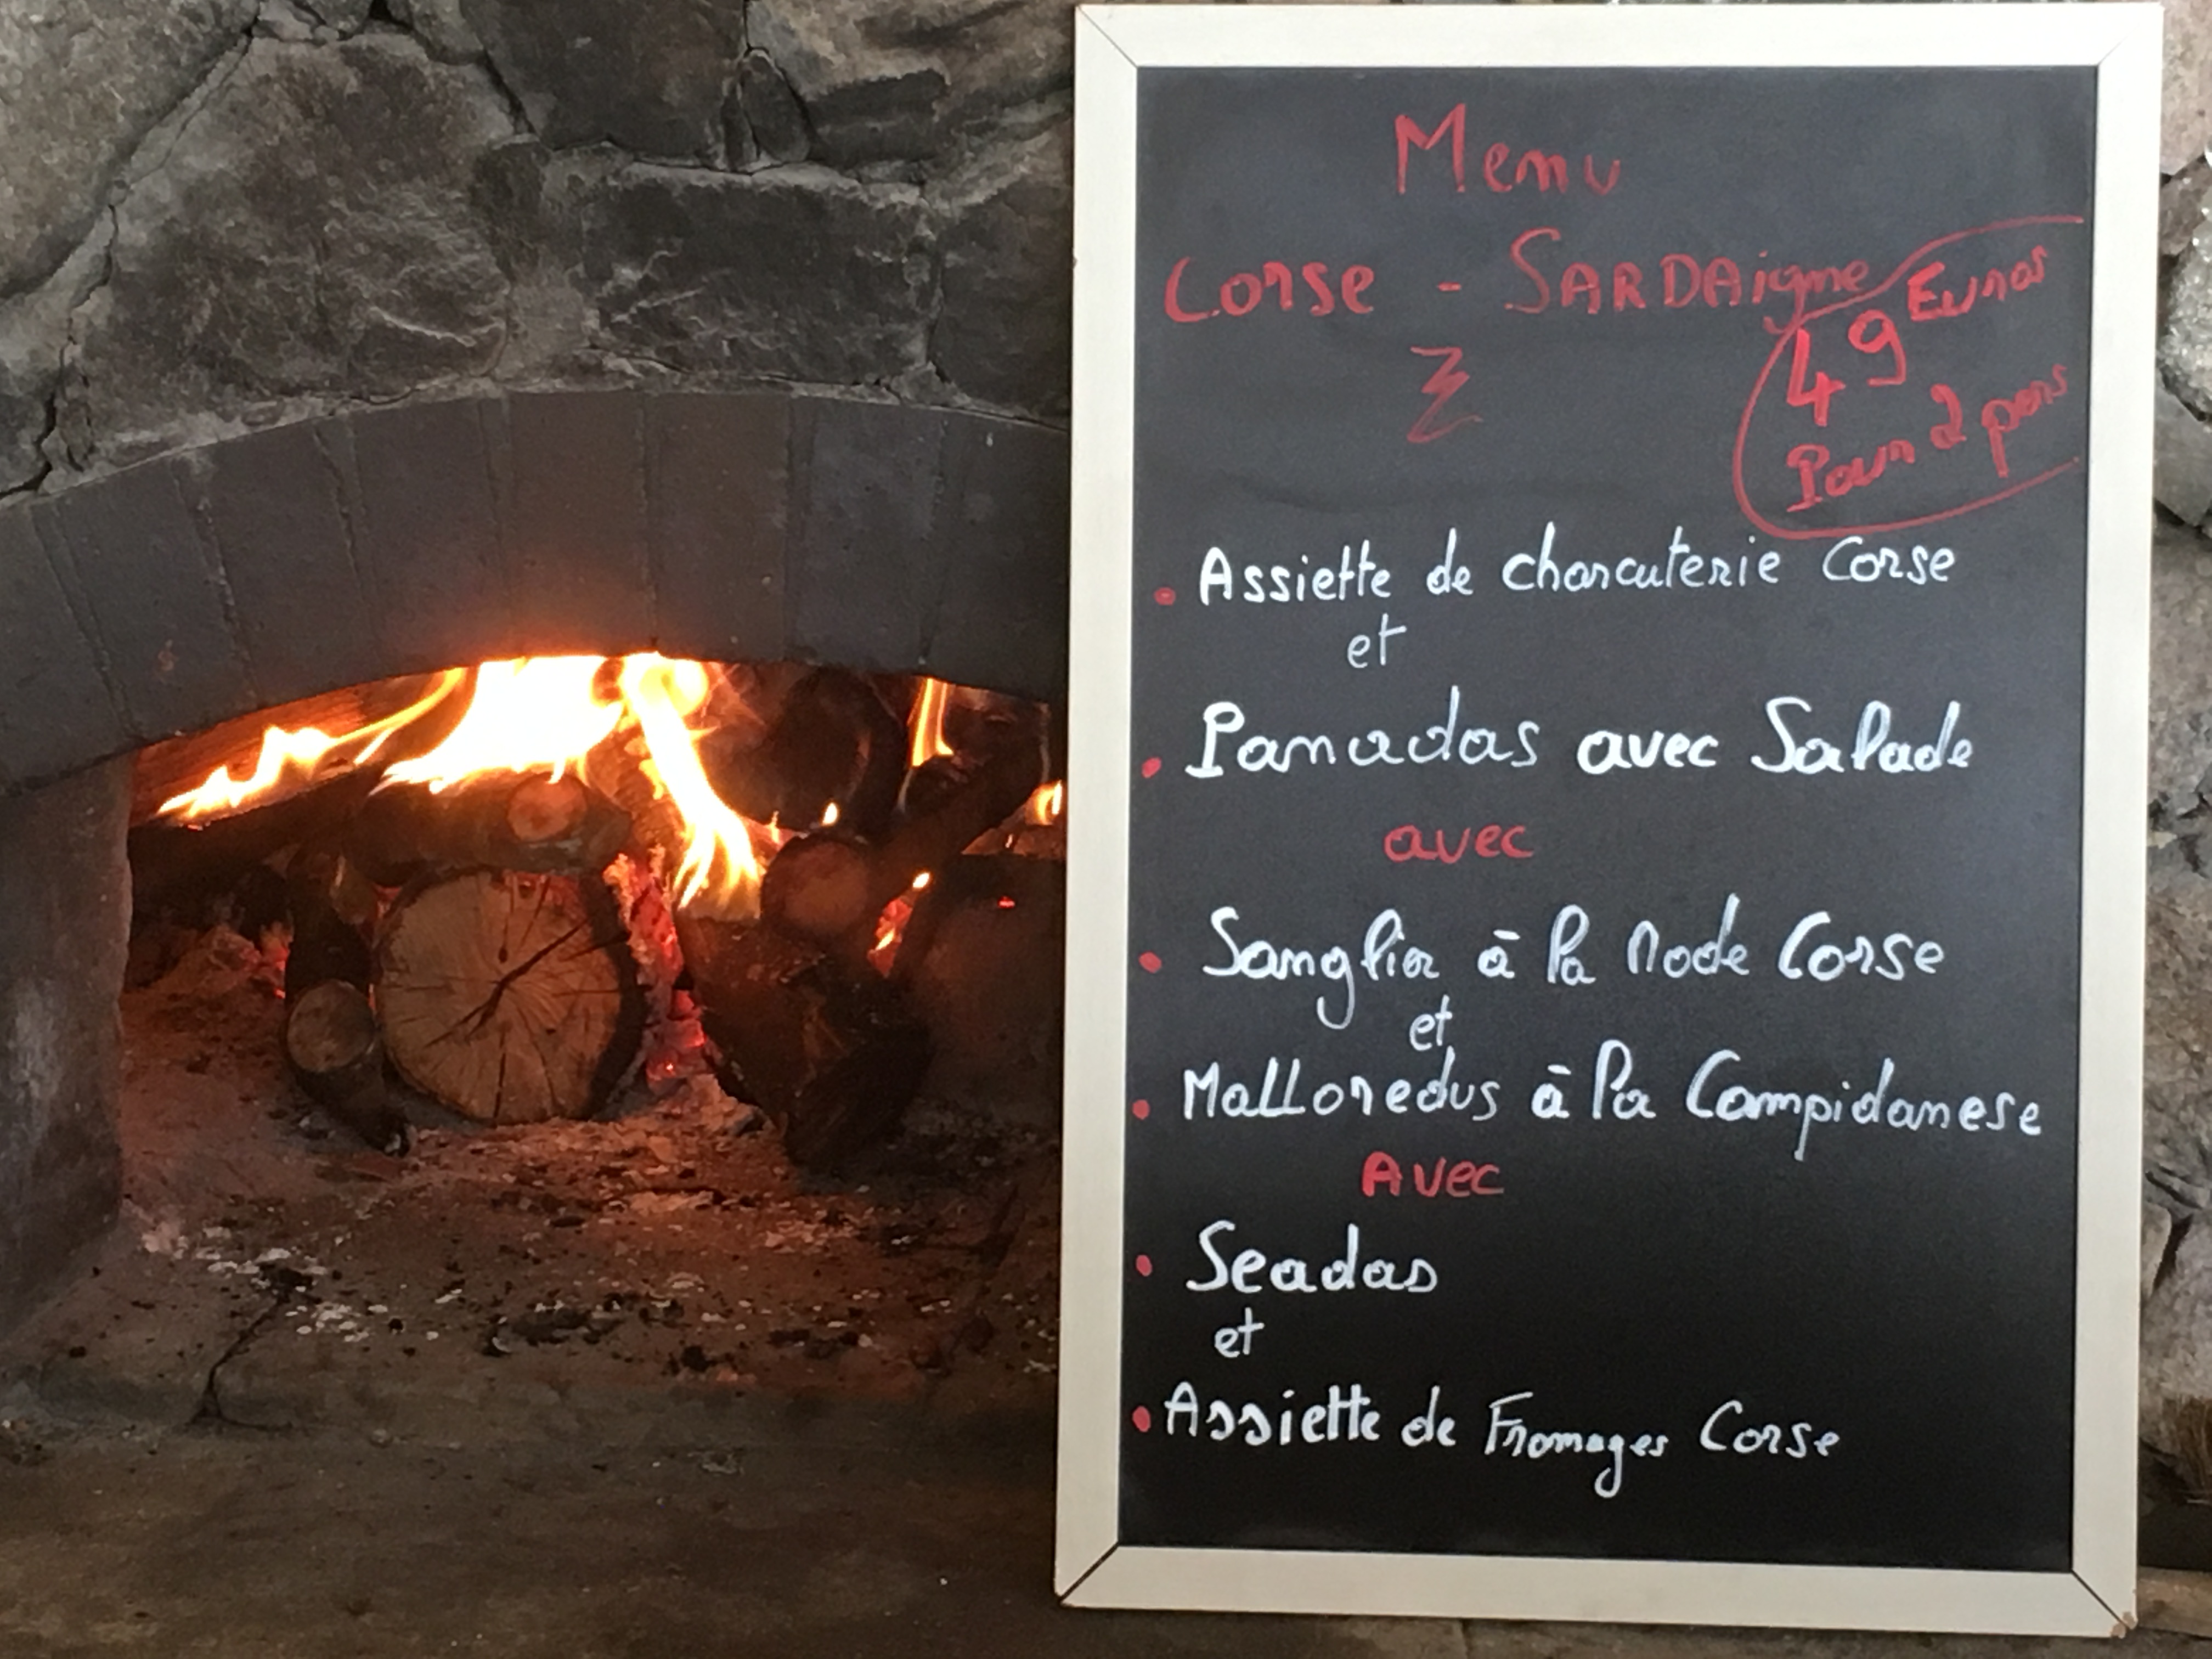 Menu
Corse - SARDAigne
49 Euros
Pour 2 pers
Assiette de charcuterie Corse
et
Panadas avec Salade
avec
Sanglier à la Mode Corse
et
Malloredus à la Campidanese
Avec
Seadas
et
Assiette de Fromages Corse